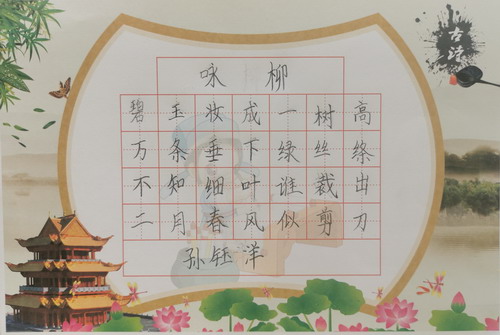 咏柳
碧玉妆成一树高
万条垂下绿丝绦
不知细叶谁裁出
二月春风似剪刀
孙钰洋
古诗